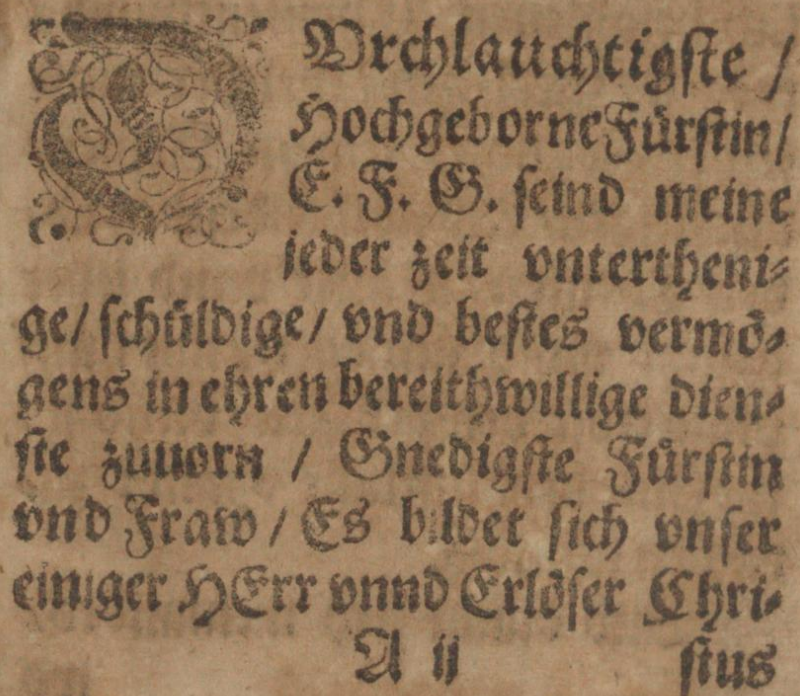 DVrchlauchtigste /
Hochgeborne Fürstin/
E. F. G. seind meine
jeder zeit vntertheni⸗
ge/ schüldige/ vnd bestes vermö⸗
gens in ehren bereithwillige dien⸗
ste zuuorn / Gnedigste Fürstin
vnd Fraw / Es bildet sich vnser
einiger HErr vnnd Erlöser Chri⸗
A ij stus